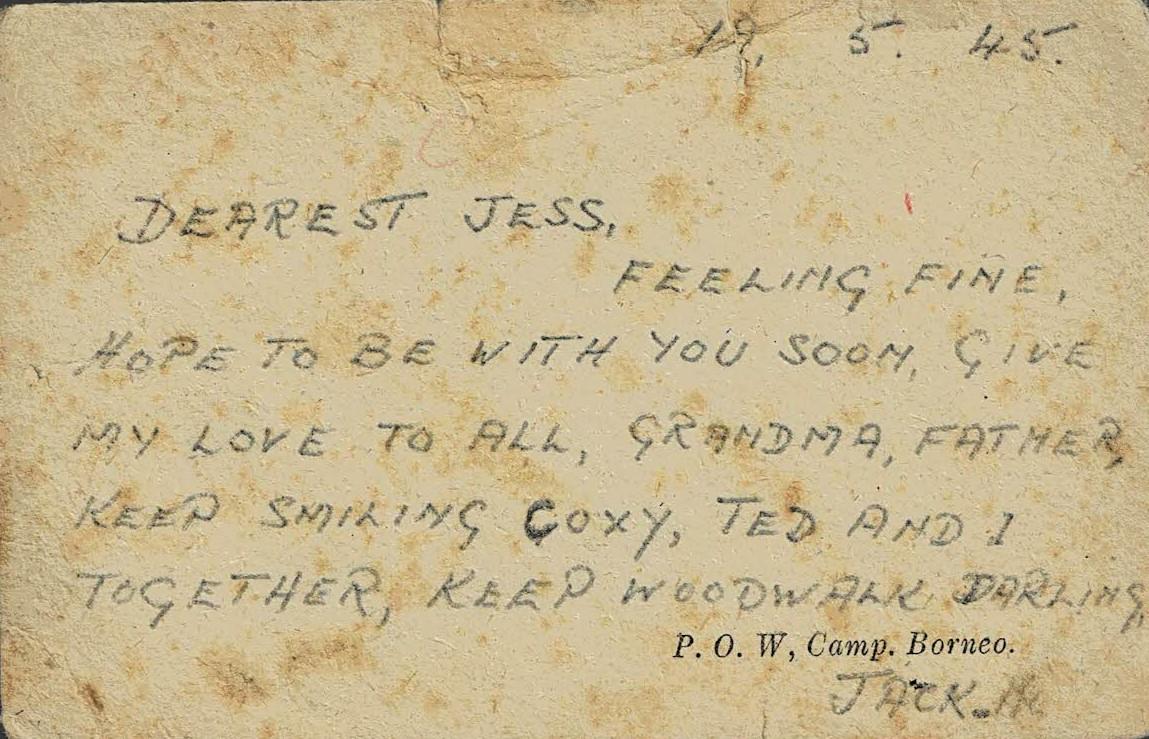 19. 5. 45.
DEAREST JESS,
FEELING FINE,
HOPE TO BE WITH YOU SOON, GIVE
MY LOVE TO ALL, GRANDMA, FATHER,
KEEP SMILING COXY, TED AND I
TOGETHER, KEEP WOODWALK DARLING,
P. O. W, Camp. Borneo.
JACK.